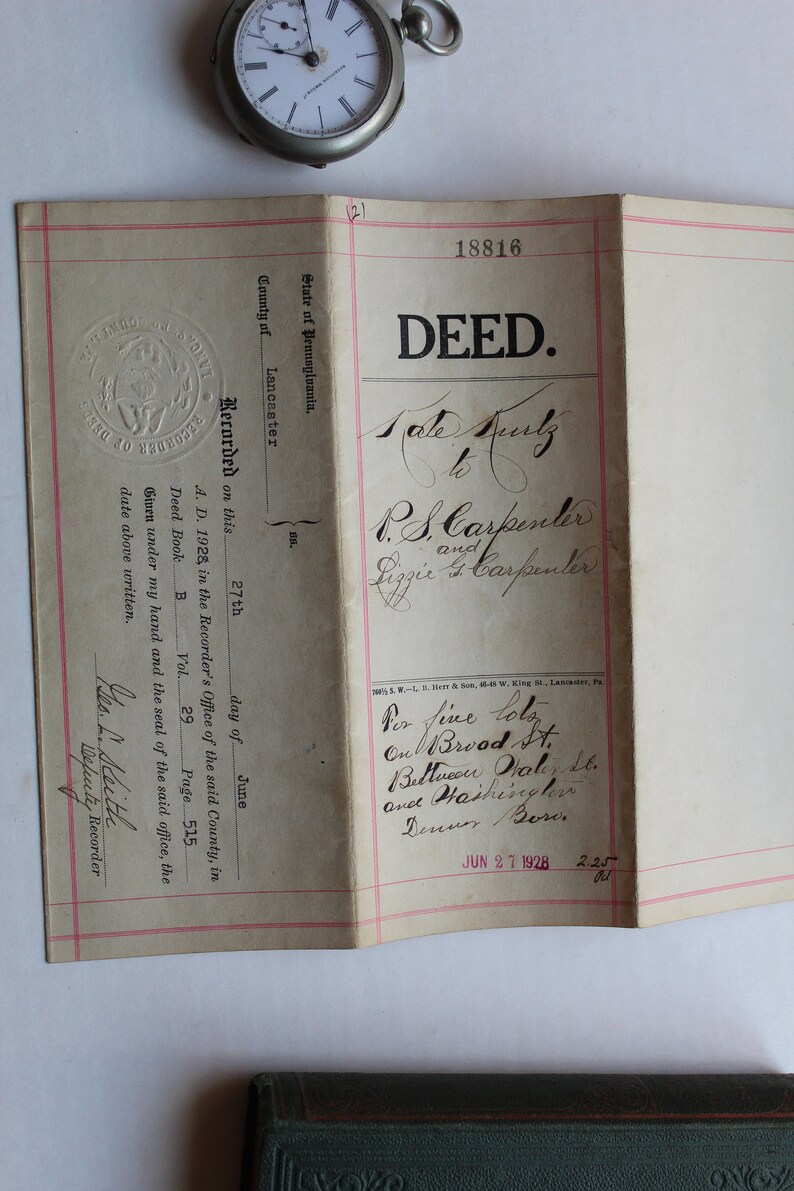 (2)
18816
DEED.
Kate Kurtz
to
P. S. Carpenter
and
Lizzie G. Carpenter
760½ S. W.—L. B. Herr & Son, 46-48 W. King St., Lancaster, Pa.
For five lots
on Broad St.
Between Water St.
and Washington
Denver Boro.
JUN 27 1928
2.25
Pd
State of Pennsylvania,
County of Lancaster } ss.
Recorded on this 27th day of June
A. D. 1928, in the Recorder's Office of the said County, in
Deed Book B Vol. 29 Page 515
Given under my hand and the seal of the said office, the
date above written.
Geo.
Deputy Recorder
RECORDER OF DEEDS